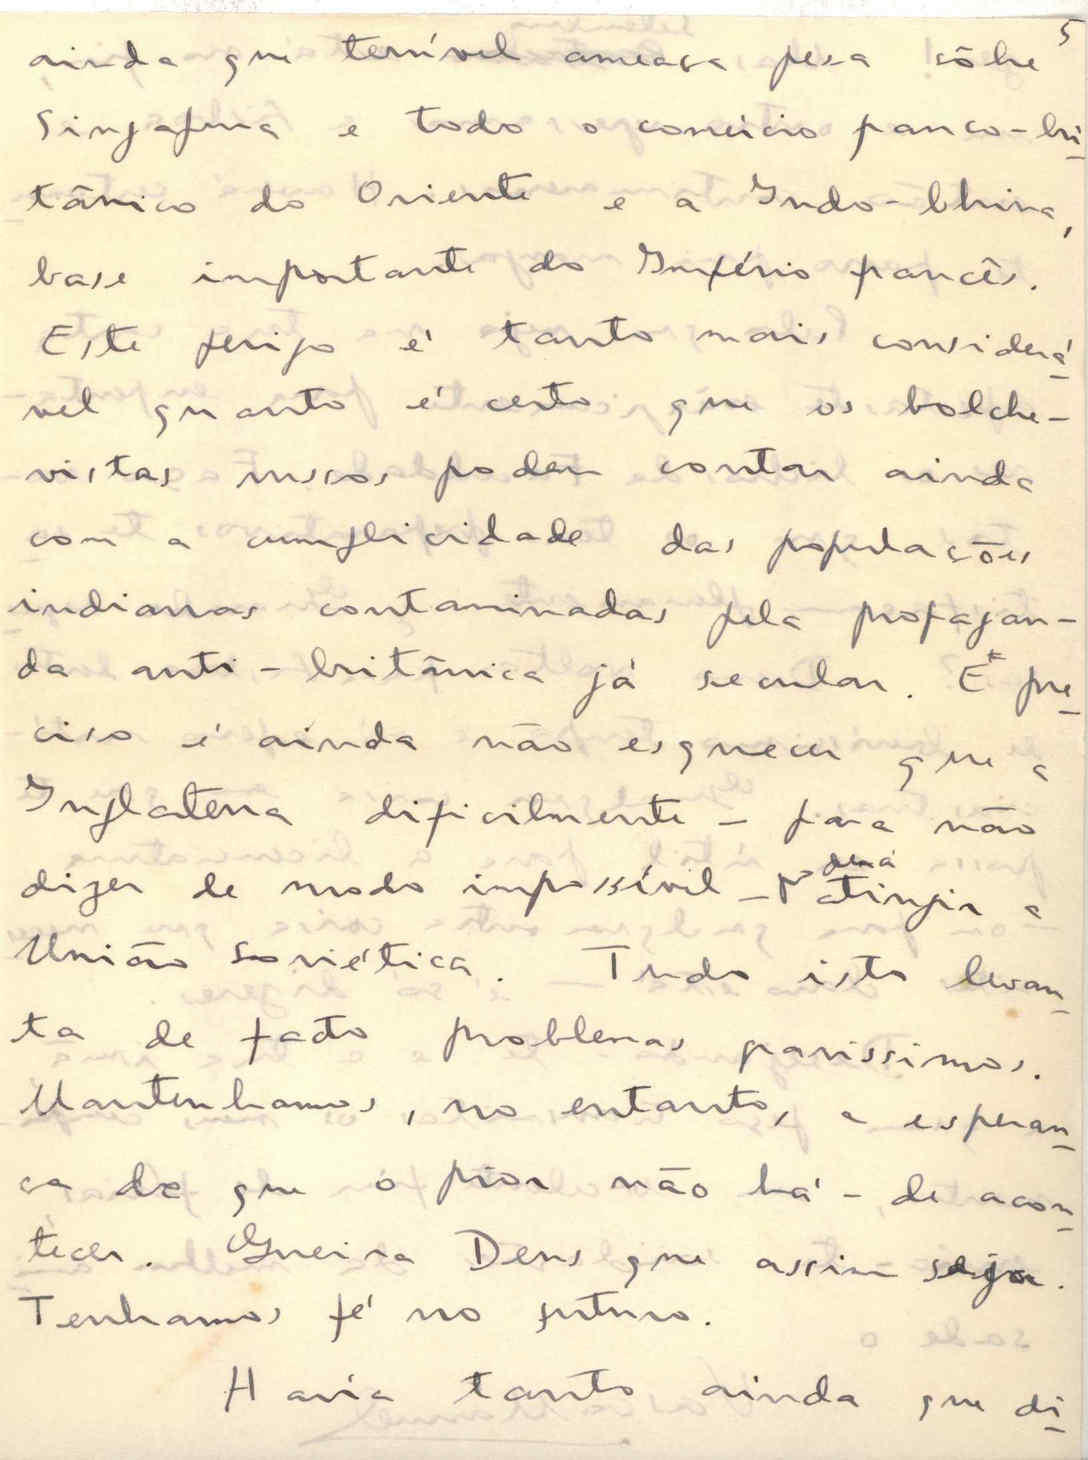 5
ainda que terrível ameaça pesa sôbre
Singapura e todo o comércio franco-bri-
tânico do Oriente e a Indo-China,
base importante do Império francês.
Este perigo é tanto mais considerá-
vel quanto é certo que os bolche-
vistas russos podem contar ainda
com a cumplicidade das populações
indianas contaminadas pela propagan-
da anti-britânica já secular. E pre-
ciso é ainda não esquecer que a
Inglaterra dificilmente - para não
dizer de modo impossível - poderá atingir a
União Soviética. Tudo isto levan-
ta de facto problemas gravissimos.
Mantenhamos, no entanto, a esperan-
ça de que o pior não há-de acon-
tecer. Queira Deus que assim seja.
Tenhamos fé no futuro.
Havia tanto ainda que di-